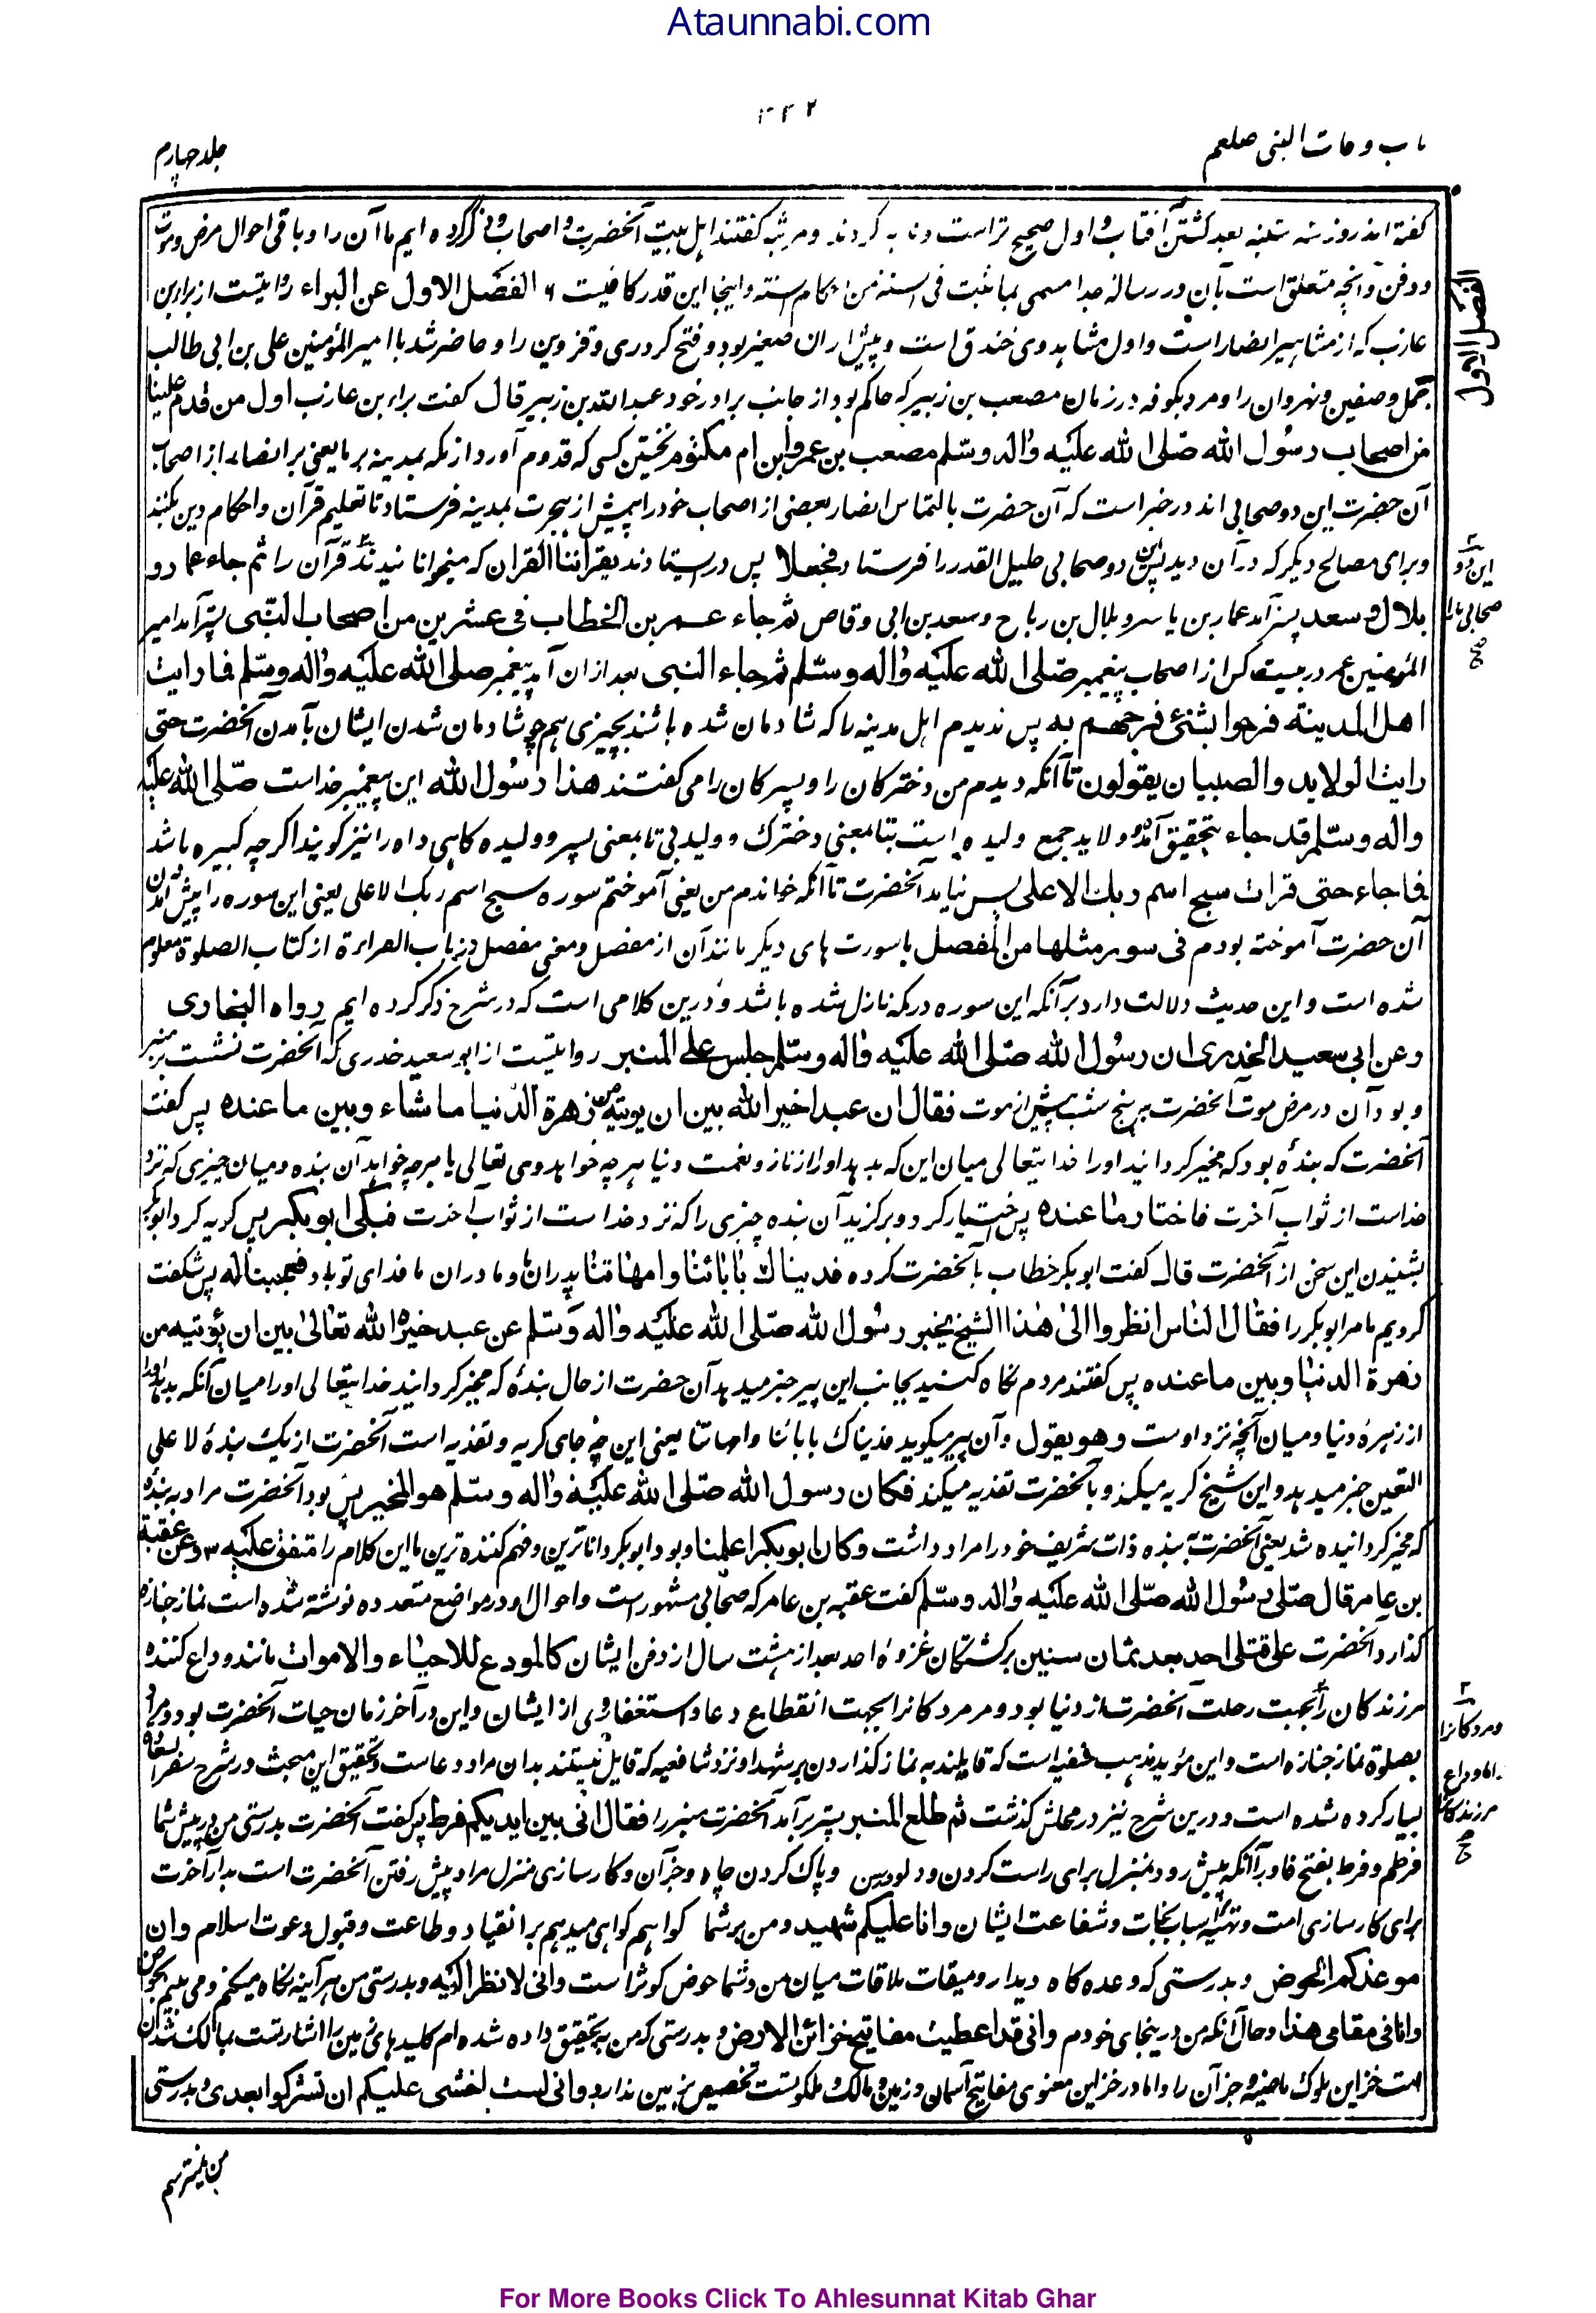 Ataunnabi.com
باب وفات النبی صلعم
جلد چهارم
گفته اند روز سه شنبه بعد گشتن آفتاب و اول صحیح تر است و ندبه کردند و مرثیه گفتند اہل بیت آنحضرت و اصحاب و ذکر کرده ایم ما آن را و باقی احوال مرض و موت
و دفن و آنچه متعلق است بآن در رساله جدا مسمی بما ثبت فی السنه من احکام السنه و اینجا این قدر کافیست الفصل الاول عن البراء روایتست از براء بن
عازب که از مشاہیر انصار است و اول مشاہد وی خندق است و پیش از ان صغیر بود و فتح کرد ری و قزوین را و حاضر شد با امیر المؤمنین علی بن ابی طالب
جمل و صفین و نهروان را و مرد بکوفه در زمان مصعب بن زبیر که حاکم بود از جانب برادر خود عبد الله بن زبیر قال گفت براء بن عازب اول من قدم علینا
من اصحاب رسول الله صلی الله علیه واله وسلم مصعب بن عمیر وابن ام مکتوم نخستین کسی که قدوم آورد از مکه بمدینه بر ما یعنی بر انصار از اصحاب
آن حضرت این دو صحابی اند در خبر است که آن حضرت بالتماس انصار بعضی از اصحاب خود را پیش از ہجرت بمدینه فرستاد تا تعلیم قرآن و احکام دین بکنند
و برای مصالح دیگر که در آن دید پس این دو صحابی جلیل القدر را فرستاد فجعلا پس در ایستادند یقرأننا القران که میخوانانیدند قرآن را ثم جاء عمار و
بلال و سعد پستر آمد عمار بن یاسر و بلال بن رباح و سعد بن ابی وقاص ثم جاء عمر بن الخطاب فی عشرین من اصحاب النبی پستر آمد امیر
المؤمنین عمر در بیست کس از اصحاب پیغمبر صلی الله علیه واله وسلم ثم جاء النبی بعد از ان آمد پیغمبر صلی الله علیه واله وسلم فما رایت
اهل المدینة فرحوا بشئ فرحهم به پس ندیدم اہل مدینه را که شادمان شده باشند بچیزی ہمچو شادمان شدن ایشان بآمدن آنحضرت حتی
رایت الولاید والصبیان یقولون تا آنکه دیدم من دخترکان را و پسرکان را می گفتند هذا رسول الله این پیغمبر خداست صلی الله علیه
واله وسلم قد جاء بتحقیق آمد و ولاید جمع ولیده است بتا معنی دخترک و ولید بی تا بمعنی پسر و ولیده گاہی داه را نیز گویند اگرچه کبیره باشد
فما جاء حتی قرات سبح اسم ربك الاعلی پس نیامد آنحضرت تا آنکه خواندم من یعنی آموختم سوره سبح اسم ربک الاعلی یعنی این سوره را پیش آمدن
آن حضرت آموخته بودم فی سور مثلها من المفصل با سورت ہای دیگر مانند آن از مفصل و معنی مفصل در باب القراءة از کتاب الصلوة معلوم
شده است و این حدیث دلالت دارد بر آنکه این سوره در مکه نازل شده باشد و درین کلامی است که در شرح ذکر کرده ایم رواه البخاری
وعن ابی سعید الخدری ان رسول الله صلی الله علیه واله وسلم جلس علی المنبر روایتست از ابو سعید خدری که آنحضرت نشست بر منبر
و بود آن در مرض موت آنحضرت به پنج شب پیش از موت فقال ان عبدا خیره الله بین ان یوتیه من زهرة الدنیا ما شاء وبین ما عنده پس گفت
آنحضرت که بندهٔ بود که مخیر گردانید او را خدا یتعالی میان این که بدہد او را از ناز و نعمت دنیا ہر چه خواہد وی تعالی یا ہر چه خواہد آن بنده و میان چیزی که نزد
خداست از ثواب آخرت فاختار ما عنده پس اختیار کرد و برگزید آن بنده چیزی را که نزد خداست از ثواب آخرت فبکی ابو بکر پس گریه کرد ابو بکر
بشنیدن این سخن از آنحضرت قال گفت ابو بکر خطاب بآنحضرت کرده فدیناك بابائنا وامهاتنا پدران ما و مادران ما فدای تو باد فعجبنا له پس شگفت
کردیم ما مر ابو بکر را فقال الناس انظروا الی هذا الشیخ یخبر رسول الله صلی الله علیه واله وسلم عن عبد خیره الله تعالی بین ان یؤتیه من
زهرة الدنیا وبین ما عنده پس گفتند مردم نگاه کنید بجانب این پیر خبر میدہد آن حضرت از حال بندهٔ که مخیر گردانید خدایتعالی او را میان آنکه بدہد او را
از زہرهٔ دنیا و میان آنچه نزد اوست وهو یقول و آن پیر میگوید فدیناک بابائنا وامهاتنا یعنی این چه جای گریه و تفدیه است آنحضرت از یک بندهٔ لا علی
التعین خبر میدہد و این شیخ گریه میکند و بآنحضرت تفدیه میکند فکان رسول الله صلی الله علیه واله وسلم هو المخیر پس بود آنحضرت مراد به بندهٔ
که مخیر گردانیده شد یعنی آنحضرت به بنده ذات شریف خود را مراد داشت وکان ابو بکر اعلمنا و بود ابو بکر داناترین و فہم کننده ترین ما این کلام را متفق علیه ۳ وعن عقبة
بن عامر قال صلی رسول الله صلی الله علیه واله وسلم گفت عقبه بن عامر که صحابی مشہور است و احوال او در مواضع متعدده نوشته شده است نماز جنازه
گذارد آنحضرت علی قتلی احد بعد ثمان سنین بر کشتگان غزوهٔ احد بعد از ہشت سال از دفن ایشان کالمودع للاحیاء والاموات مانند وداع کننده
مر زندگان را بجهت رحلت آنحضرت از دنیا بود و مر مردگان را بجهت انقطاع دعا و استغفار وی از ایشان و این در آخر زمان حیات آنحضرت بود و مراد
بصلوة نماز جنازه است و این مؤید مذہب حنفیه است که قایلند به نماز گذاردن بر شہدا و نزد شافعیه که قایل نیستند بدان مراد دعاست و تحقیق این مبحث در شرح سفر السعادة
بسیار کرده شده است و درین شرح نیز در محلش گذشت ثم طلع المنبر پستر برآمد آنحضرت منبر را فقال انی بین ایدیکم فرط پس گفت آنحضرت بدرستی من در پیش شما
فرطم و فرط بفتح فا و را آنکه پیش رود بمنزل برای راست کردن ود لو ورسن و پاک کردن چاه و جز آن و کارسازی منزل مراد پیش رفتن آنحضرت است بدار آخرت
برای کارسازی امت و تهیهٔ اسباب نجات و شفاعت ایشان وانا علیکم شهید و من بر شما گواہم گواہی میدہم بر انقیاد و طاعت و قبول دعوت اسلام وان
موعدکم الحوض و بدرستی که وعده گاه دیدار و میقات ملاقات میان من و شما حوض کوثر است وانی لانظر الیه و بدرستی من ہر آینه نگاه میکنم و می بینم بحوض
وانا فی مقامی هذا و حال آنکه من در ینجای خودم وانی قد اعطیت مفاتیح خزائن الارض و بدرستی که من به تحقیق داده شده ام کلید ہای زمین را اشارتست بمالک شدن
امت خزاین ملوک ماضیه و جز آن را و اما در خزاین معنوی مفاتیح آسمان و زمین و مالک و ملکوتست تخصیص بزمین ندارد وانی لست اخشی علیکم ان تشرکوا بعدی و بدرستی
من نمیترسم
الفصل الاول
این دو
صحابی را
صح
و مردگان را
اما وداع
مر زندگان
صح
For More Books Click To Ahlesunnat Kitab Ghar